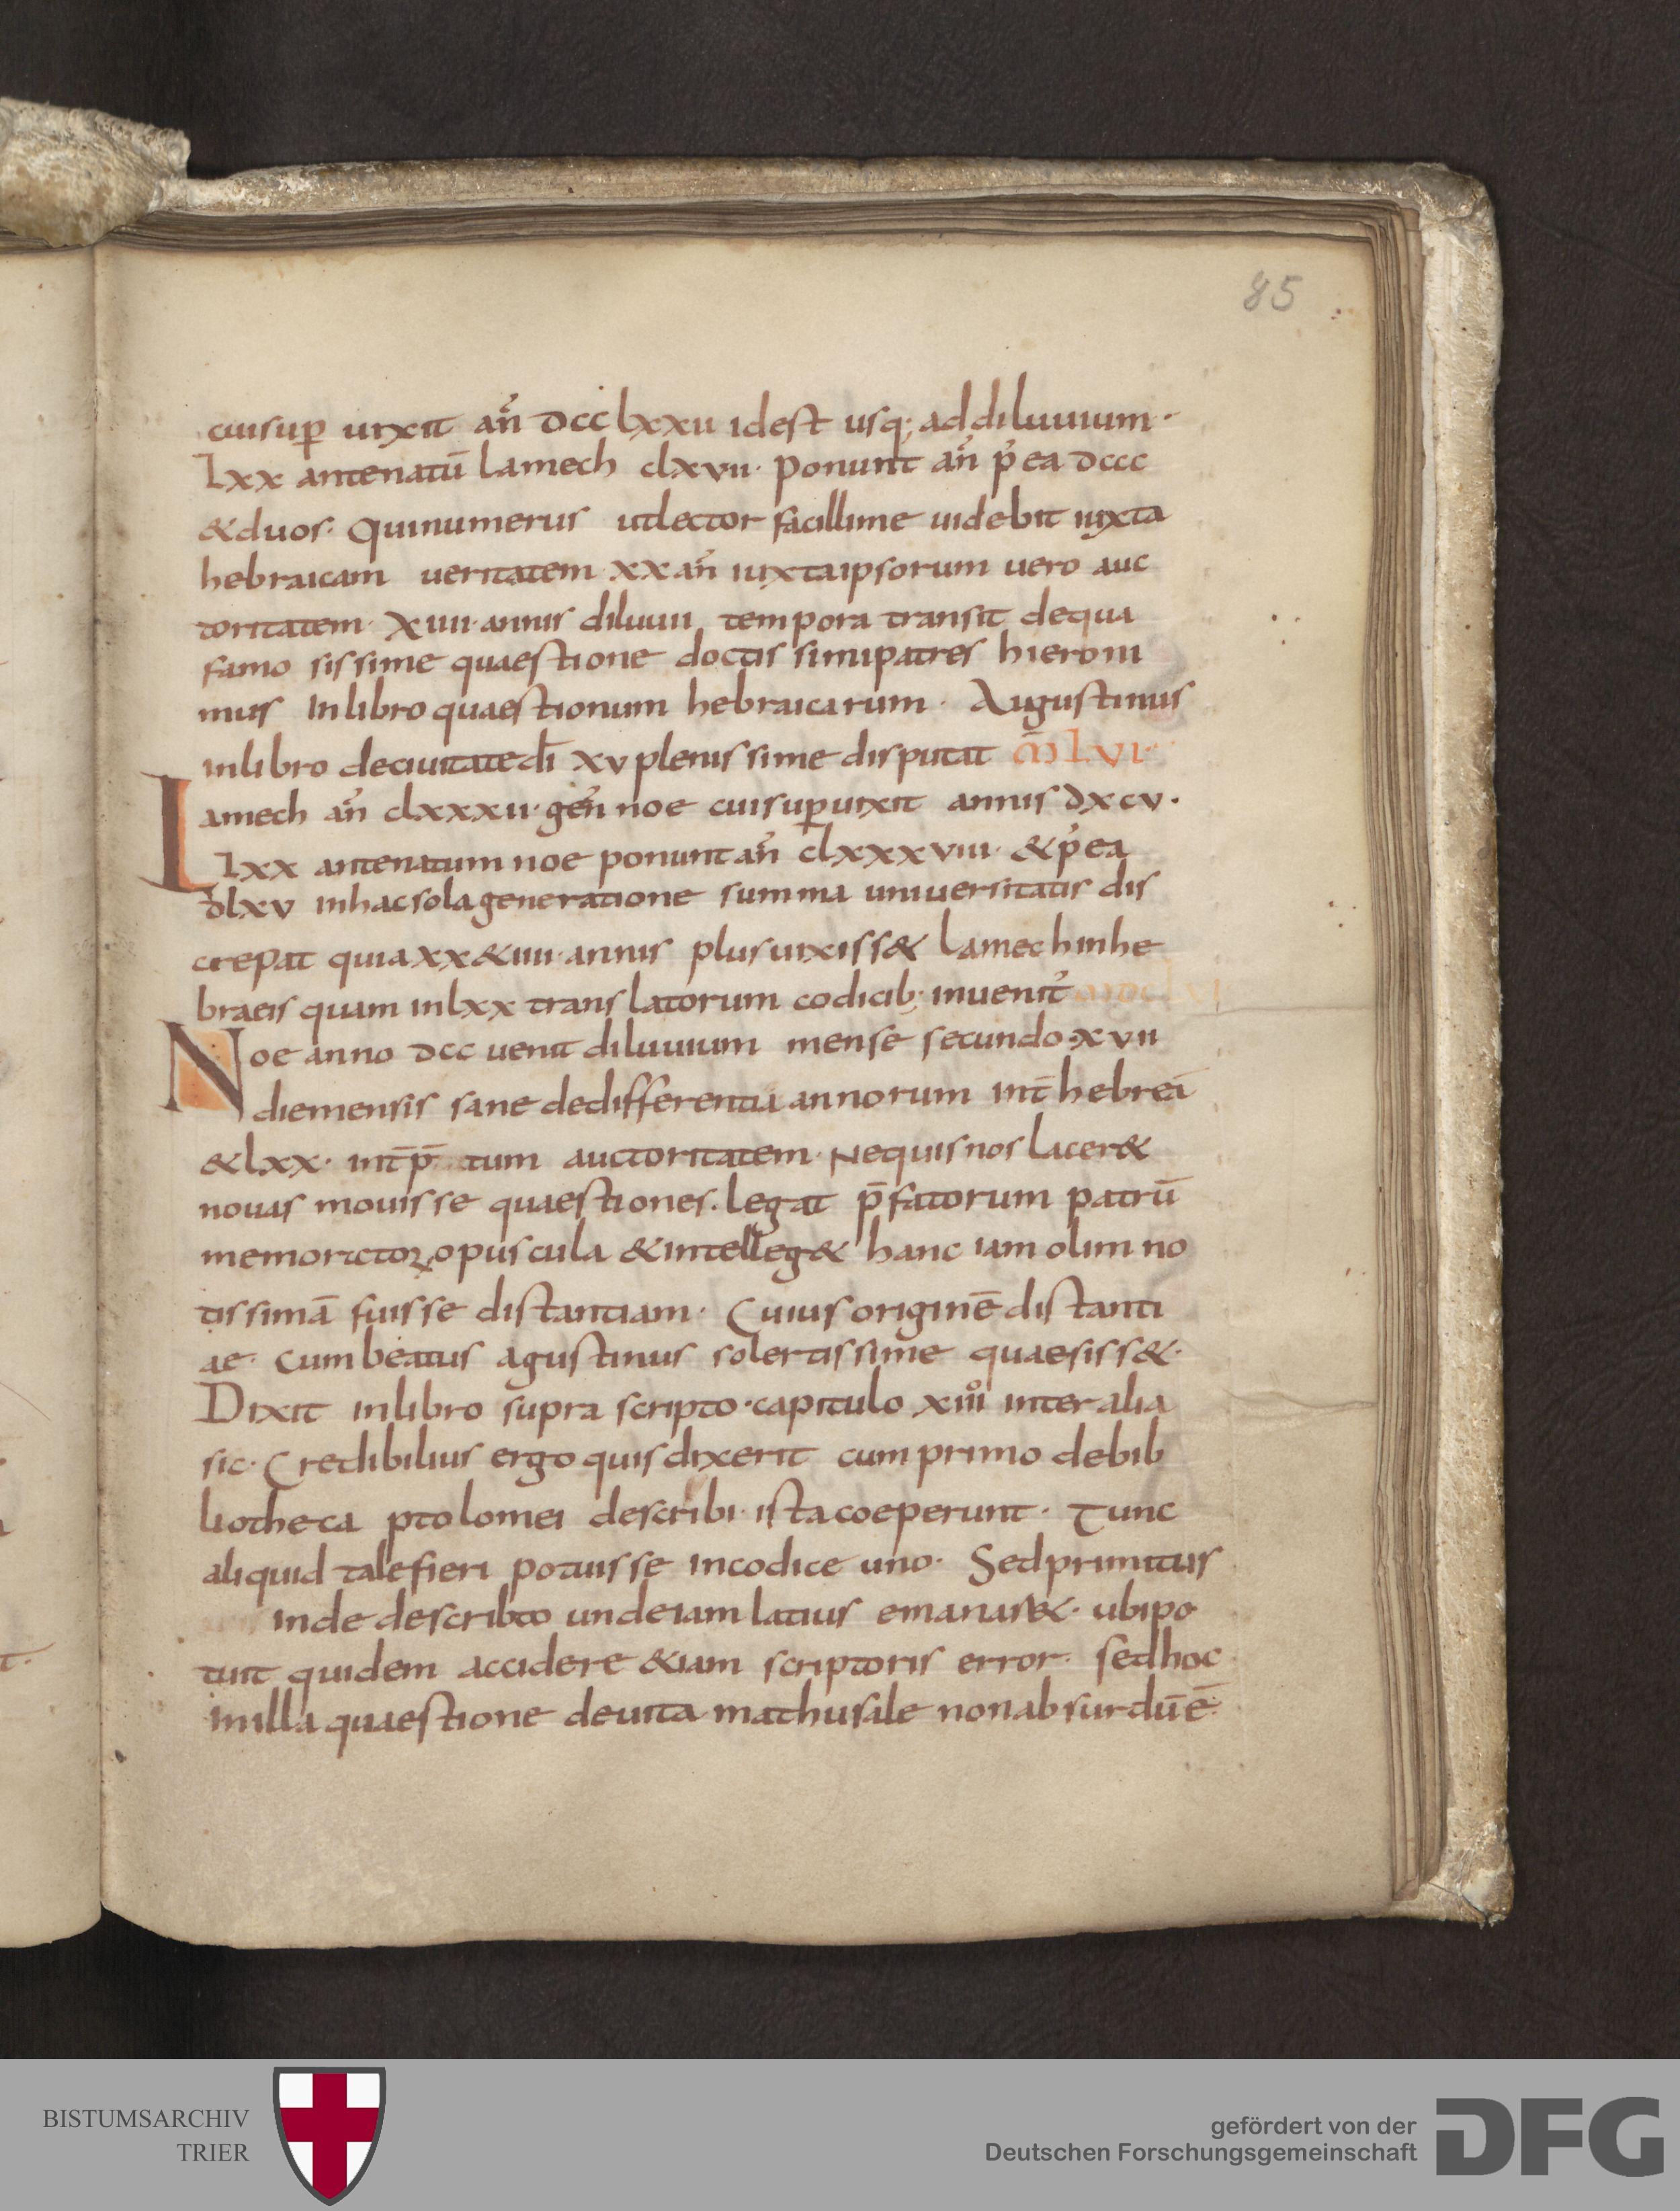 85
cuisup̄ uixit an̄ dcclxxii idest usq; addiluuium·
lxx antenatū lamech clxvii· ponunt an̄ p̓ea dccc
&duos· Quinumerus utlector facillime uidebit iuxta
hebraicam ueritatem xx an̄ iuxtaipsorum uero auc
toritatem· xiiii· annis diluuii tempora transit dequa
famo sissime quaestione doctis simipatres hieroni
mus Inlibro quaestionum hebraicarum· Augustinus
inlibro deciuitatedī xv plenissime disputat
Lamech an̄ clxxxii· gen̄ noe cuisup̄uixit annis dxcv·
lxx antenatum noe ponunt an̄ clxxxviii· &p̓ea
dlxv inhacsolageneratione summa uniuersitatis dis
crepat quiaxx&iiii· annis plusuixiss& lamechinhe
braeis quam inlxx translatorum codicib; inuenit̓
Noe anno dcc uenit diluuium mense secundo·xvii
diemensis sane dedifferentia annorum int̄ hebreā
&lxx· int̄p̄ tum auctoritatem· Nequisnos lacer&
nouas mouisse quaestiones. legat p̄fatorum patrū
memoratoꝝ opuscula &intelleg& hanc iam olim no
tissimā fuisse distantiam· Cuius originē distanti
ae· cum beatus agustinus solertissime quaesiss&·
Dixit inlibro supra scripto·capitulo xiiii̊ inter alia
sic· Credibilius ergo quisdixerit cum primo debib
liotheca ptolomei describi· ista coeperunt· Tunc
aliquid talefieri potuisse incodice uno· Sedprimitus
inde describto undeiam latius emanas&· ubipo
tuit quidem accidere &iam scriptoris error· sedhoc
inilla quaestione deuita mathusale nonabsurdūē·
BISTUMSARCHIV
TRIER
gefördert von der
Deutschen Forschungsgemeinschaft
DFG